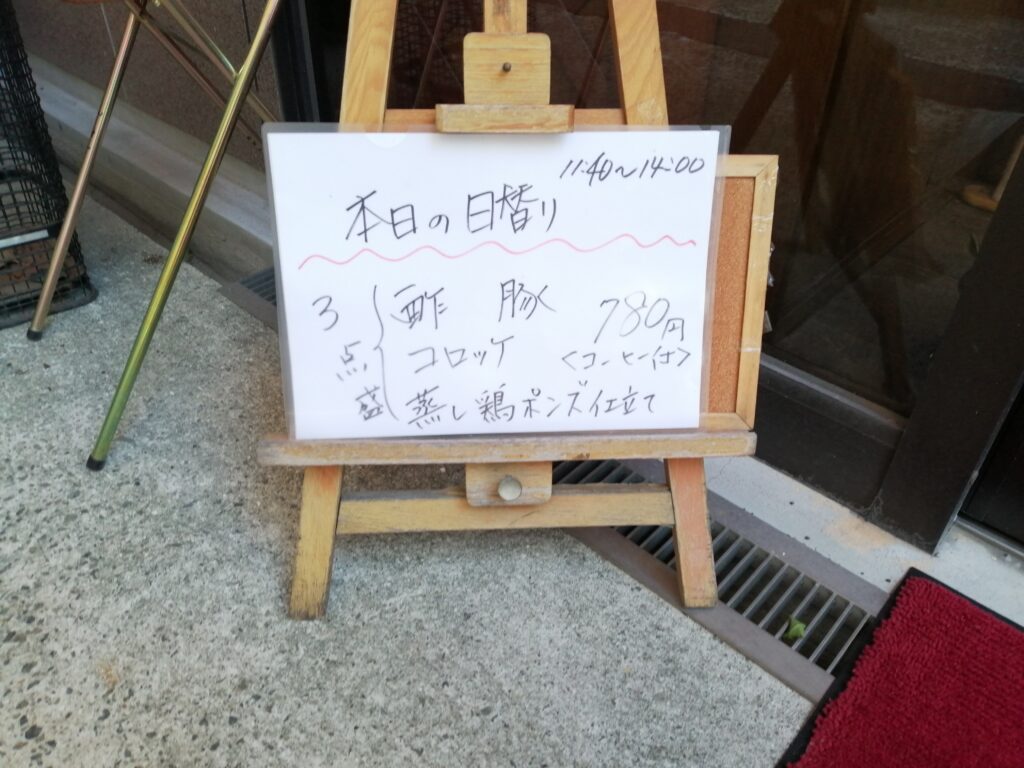 11:40〜14:00
本日の日替り
3点盛
酢豚
780円
コロッケ
<コーヒー付>
蒸し鶏ポンズ仕立て